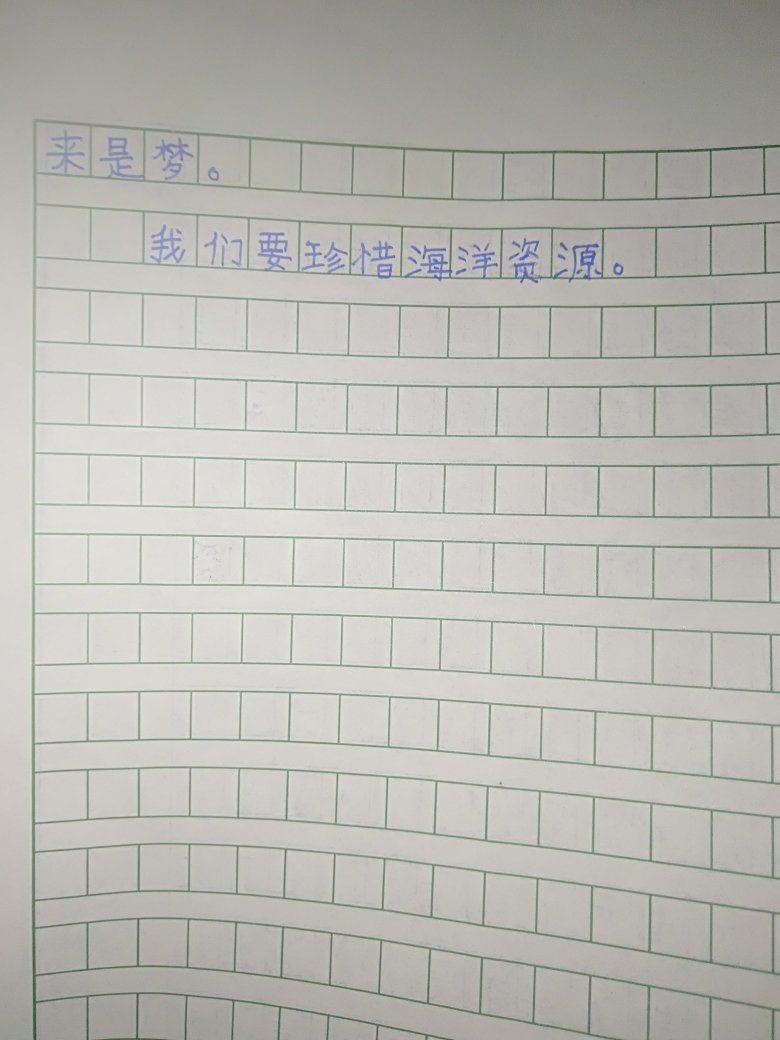 来是梦。
我们要珍惜海洋资源。